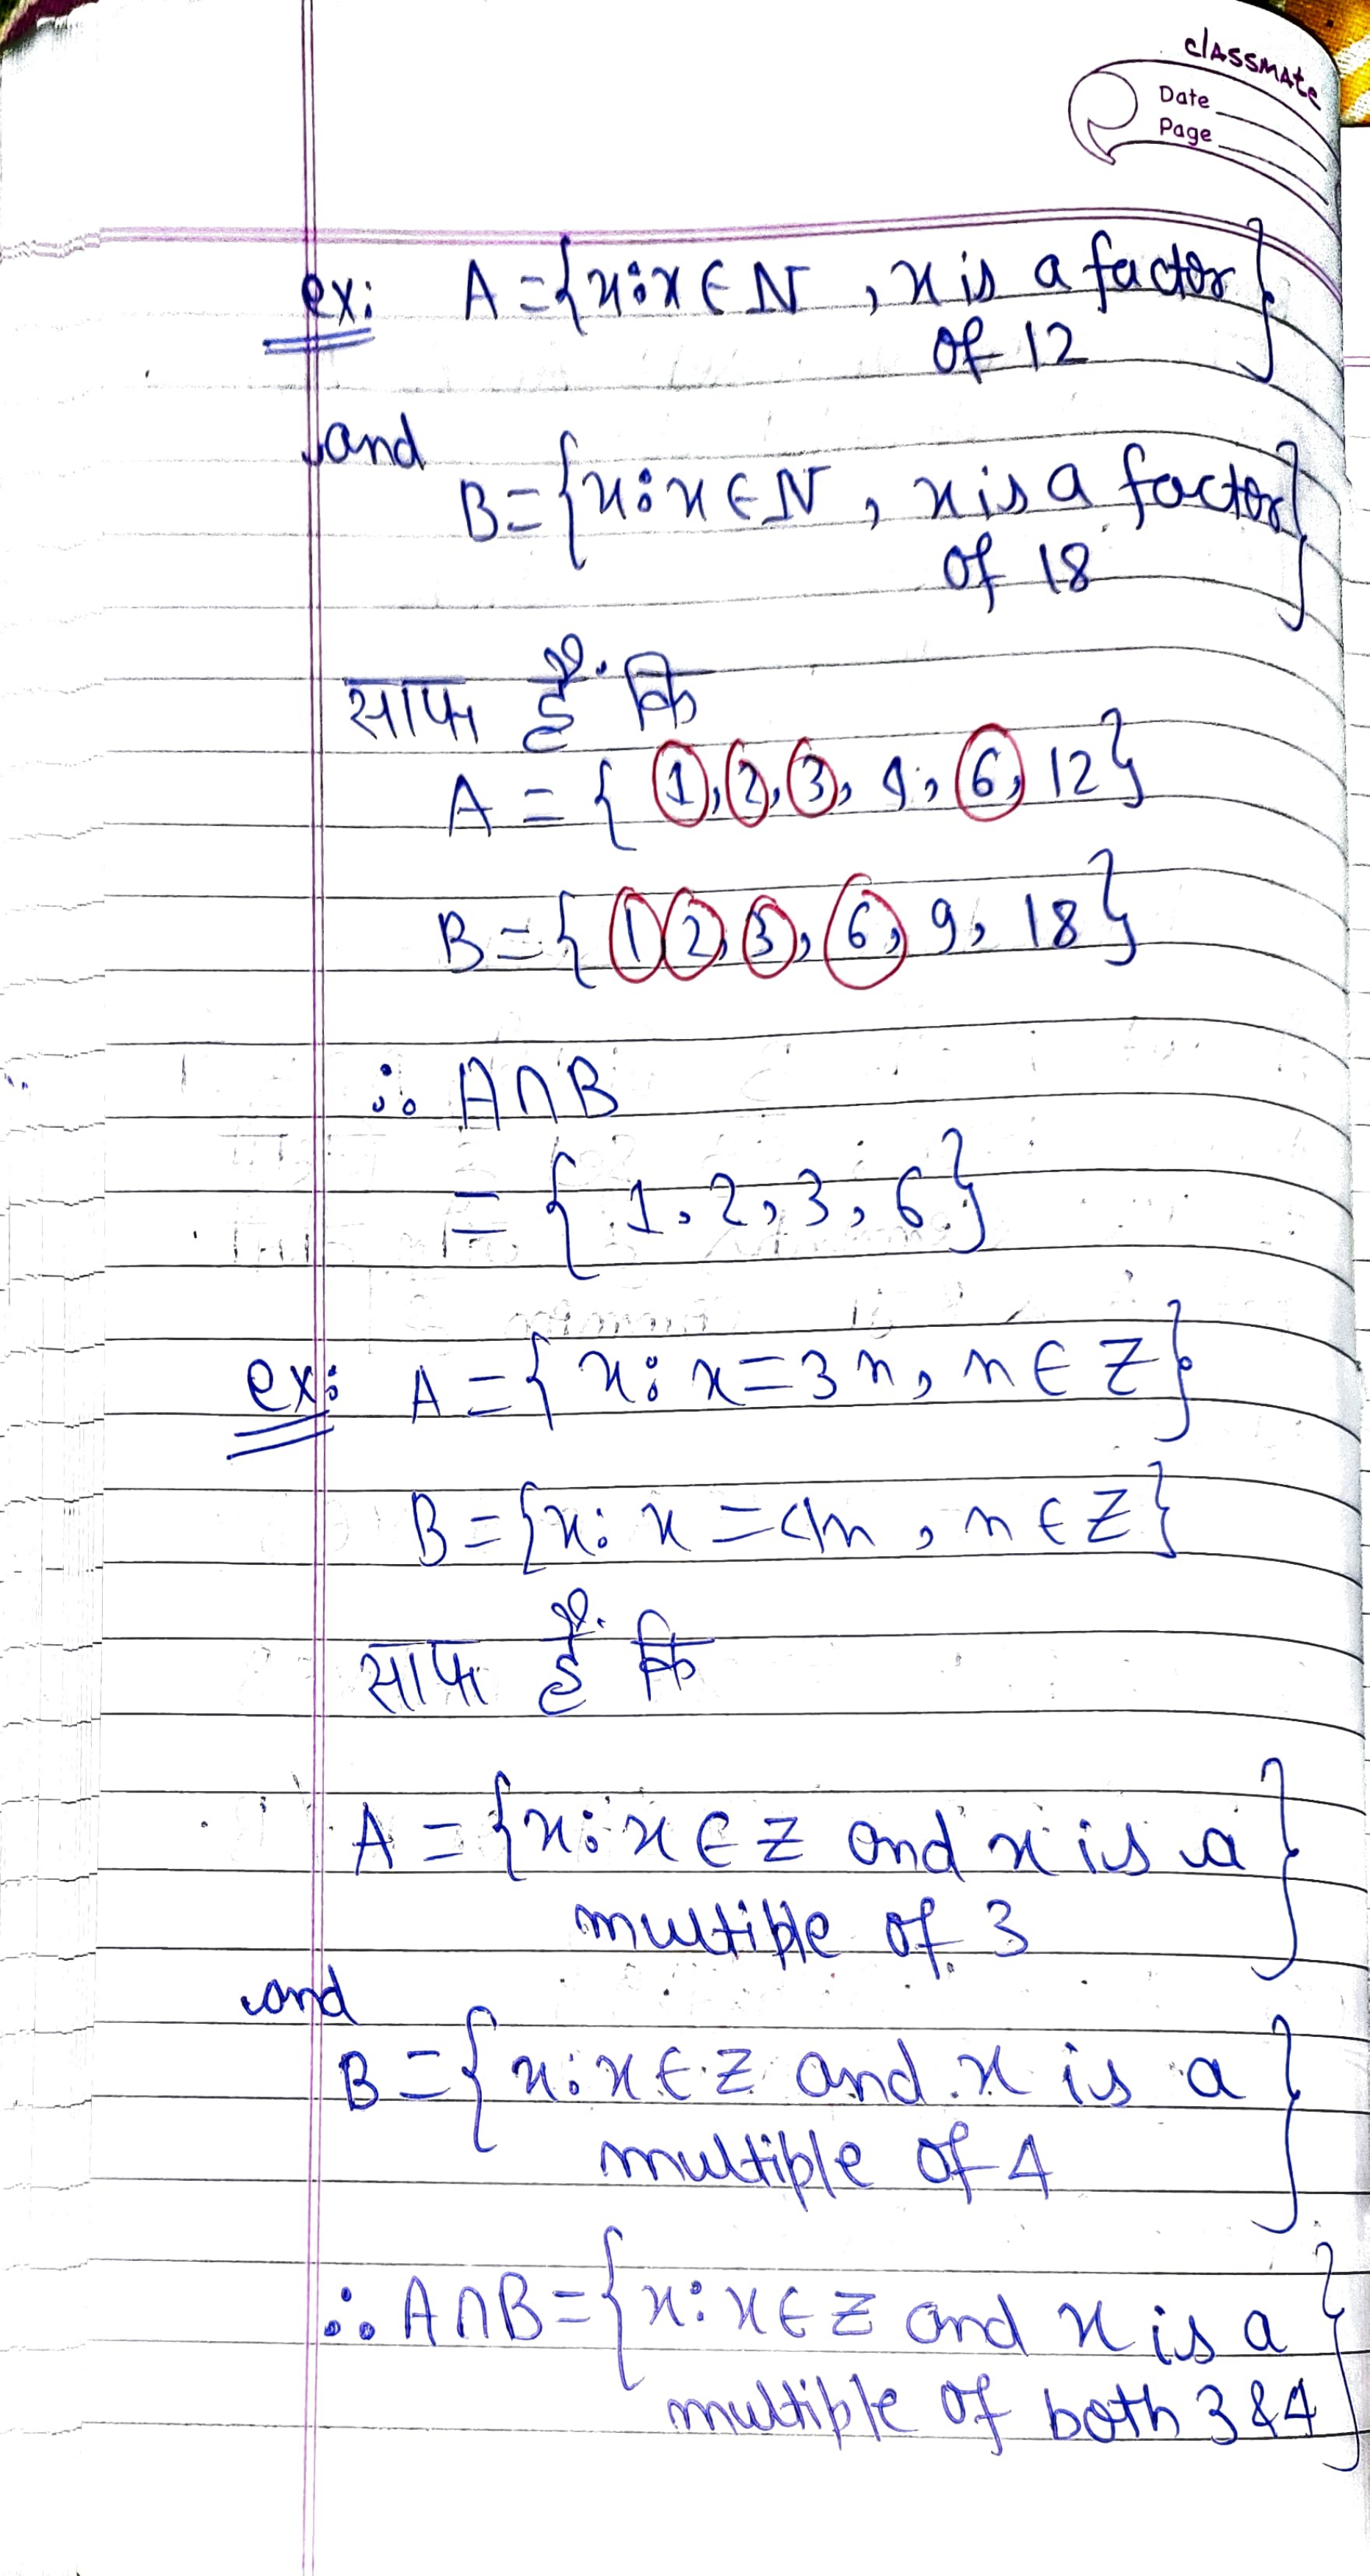 classmate
Date
Page
ex: A = {x : x ∈ N , x is a factor
of 12}
and
B = {x : x ∈ N , x is a factor
of 18}
साफ है कि
A = { 1, 2, 3, 4, 6, 12}
B = { 1 2, 3, 6, 9, 18}
∴ A∩B
= { 1, 2, 3, 6}
ex: A = { x : x = 3n, n ∈ Z}
B = {x : x = 4n , n ∈ Z}
साफ है कि
A = {x : x ∈ Z and x is a
multiple of 3}
and
B = { x : x ∈ Z and x is a
multiple of 4}
∴ A∩B = {x : x ∈ Z and x is a
multiple of both 3 & 4}